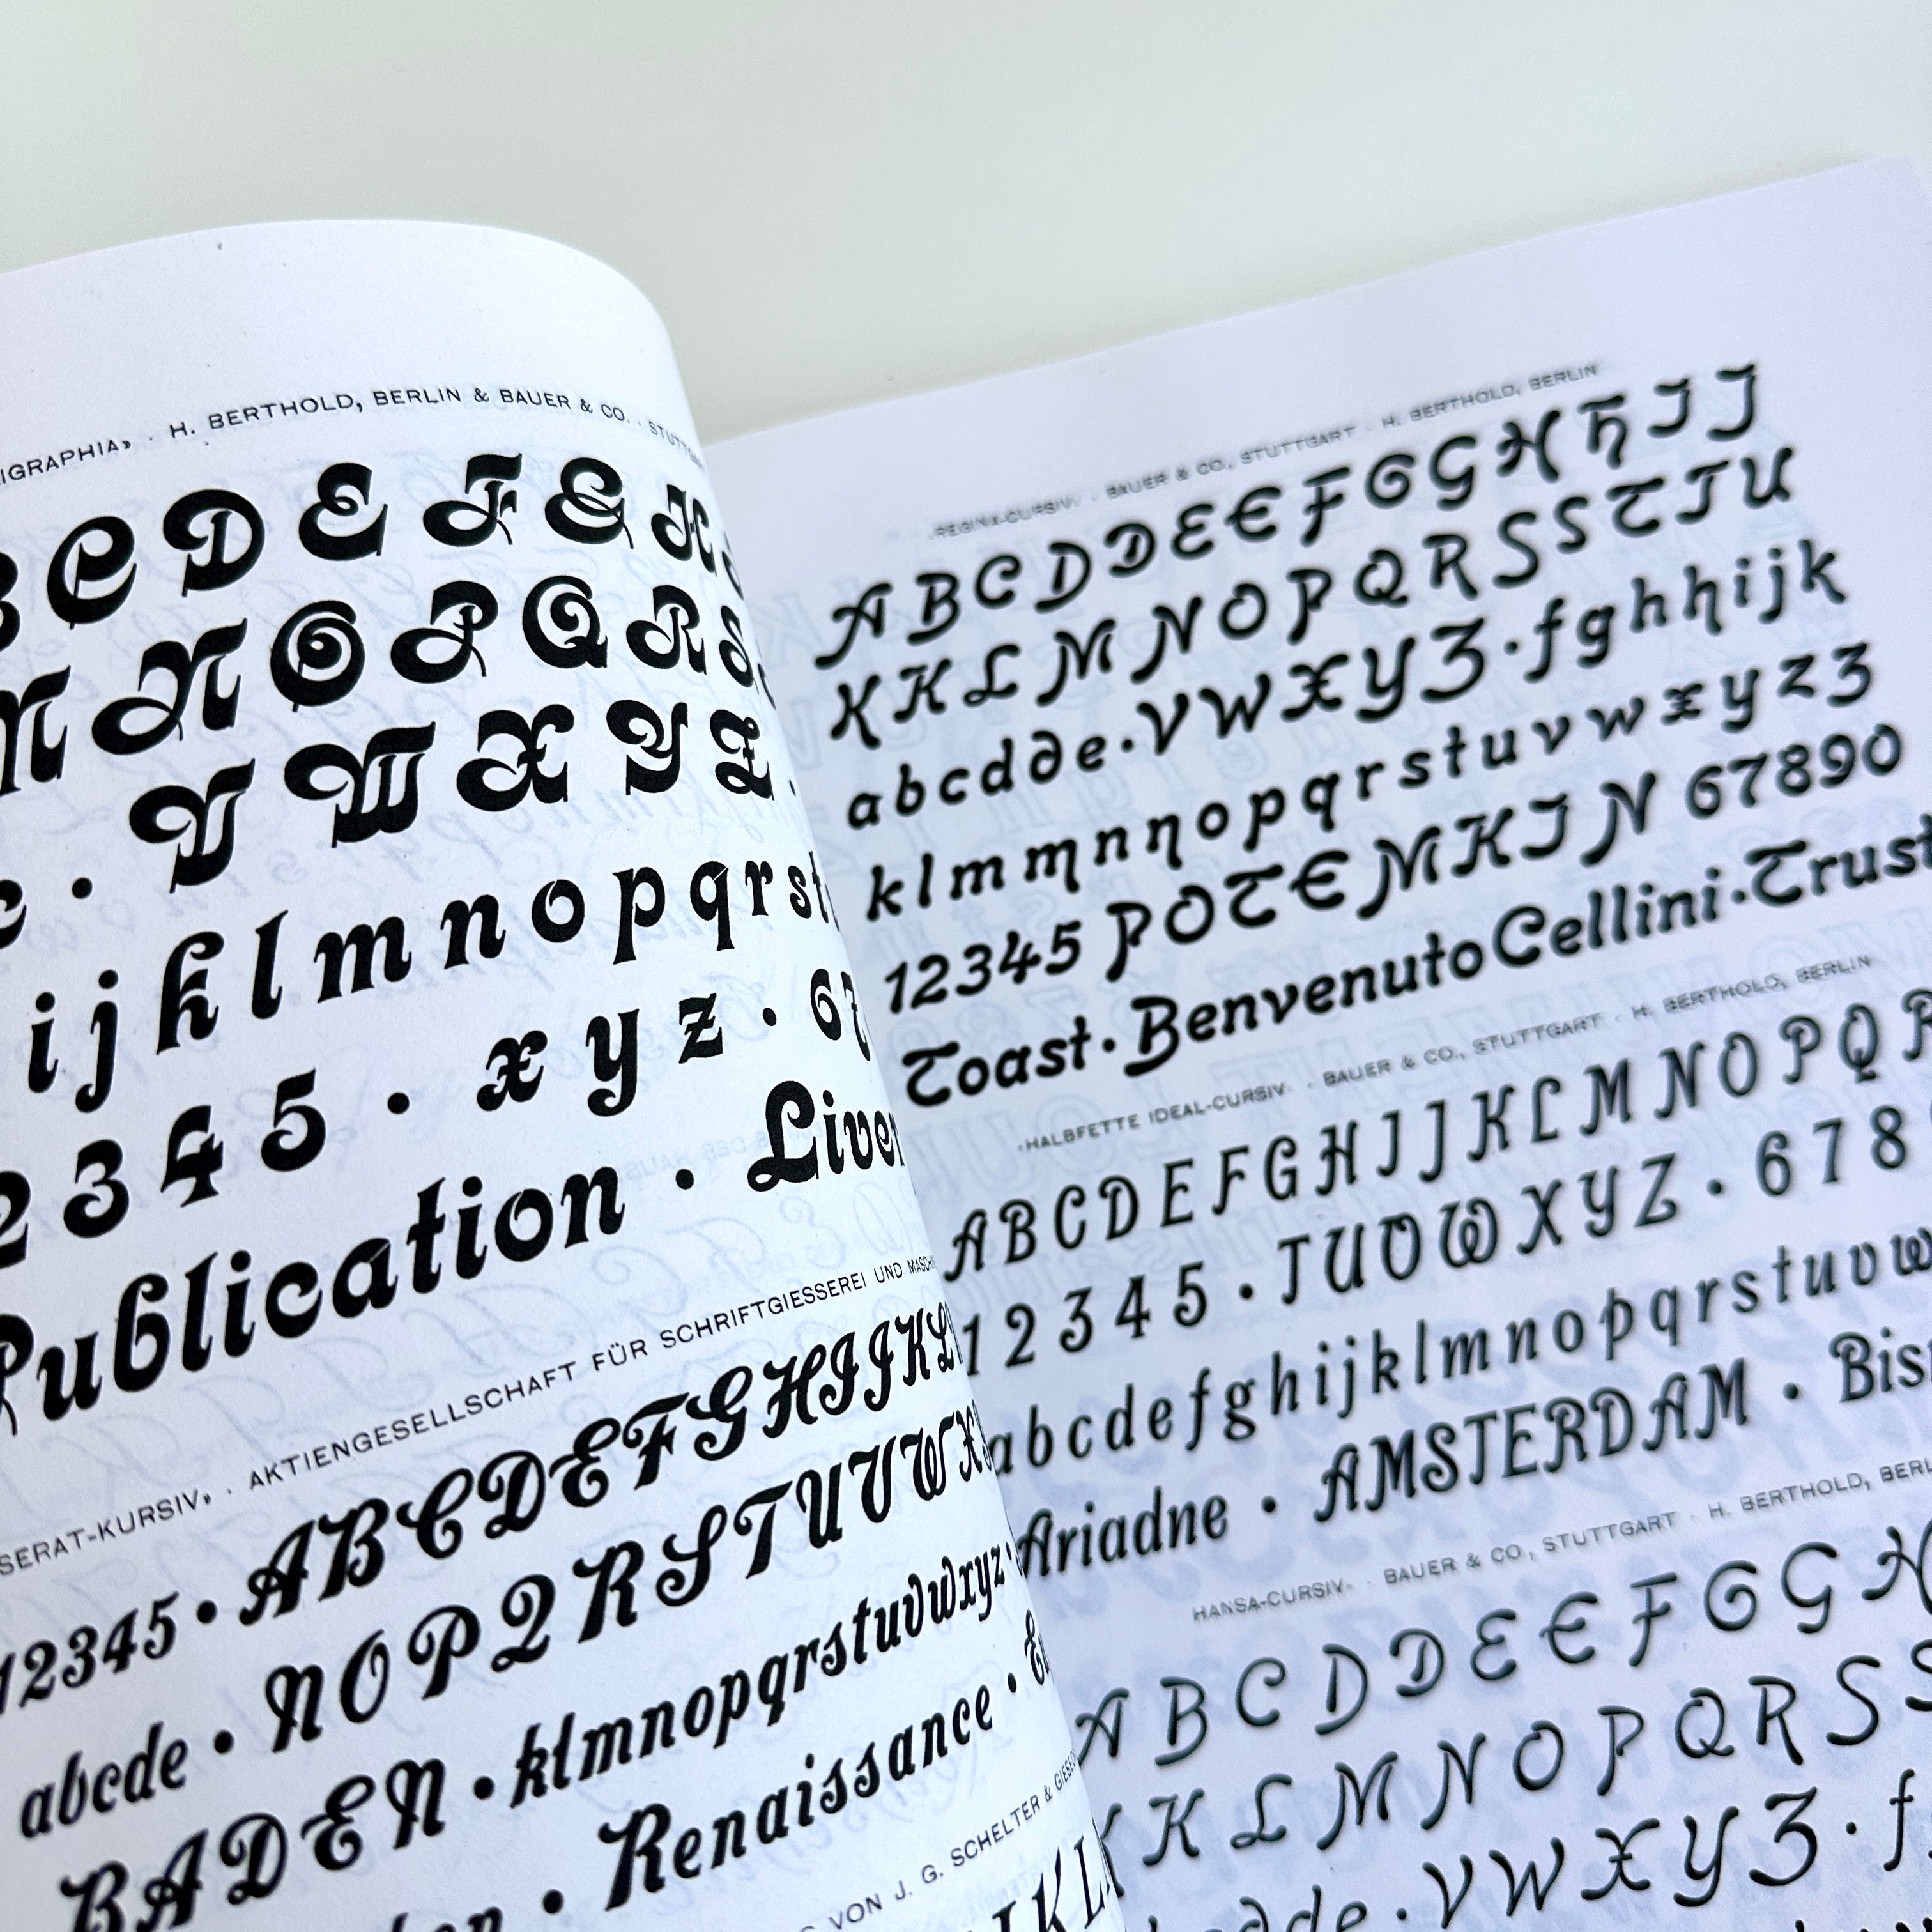 H. BERTHOLD, BERLIN & BAUER & CO. ·
C D E F G H
N O P Q R S
· V W X Y Z ·
i j k l m n o p q r s t
2 3 4 5 · x y z · 6 7
Publication ·
AKTIENGESELLSCHAFT FÜR SCHRIFTGIESSEREI UND
12345 · ABCDEFGHIJKL
abcde · NOPQRSTUVWX
BADEN · klmnopqrstuvwxyz ·
· Renaissance ·
VON J. G. SCHELTER &
REGINA-CURSIV · BAUER & CO., STUTTGART · H. BERTHOLD, BERLIN
A B C D D E E F G G H H I J
K K L M N O P Q R S S T T U
a b c d d e · V W X Y Z · f g h h i j k
k l m m n n o p q r s t u v w x y z z
12345 POTEMKIN 67890
Toast · Benvenuto Cellini · Trust
«HALBFETTE IDEAL-CURSIV» · BAUER & CO., STUTTGART · H. BERTHOLD, BERLIN
A B C D E F G H I J K L M N O P Q R
1 2 3 4 5 · T U V W X Y Z · 6 7 8
a b c d e f g h i j k l m n o p q r s t u v w
Ariadne · AMSTERDAM ·
HANSA-CURSIV» · BAUER & CO., STUTTGART · H. BERTHOLD,
A B C D D E E F G G H
K K L M N O P Q R S S
d d e · V W X Y Z · f